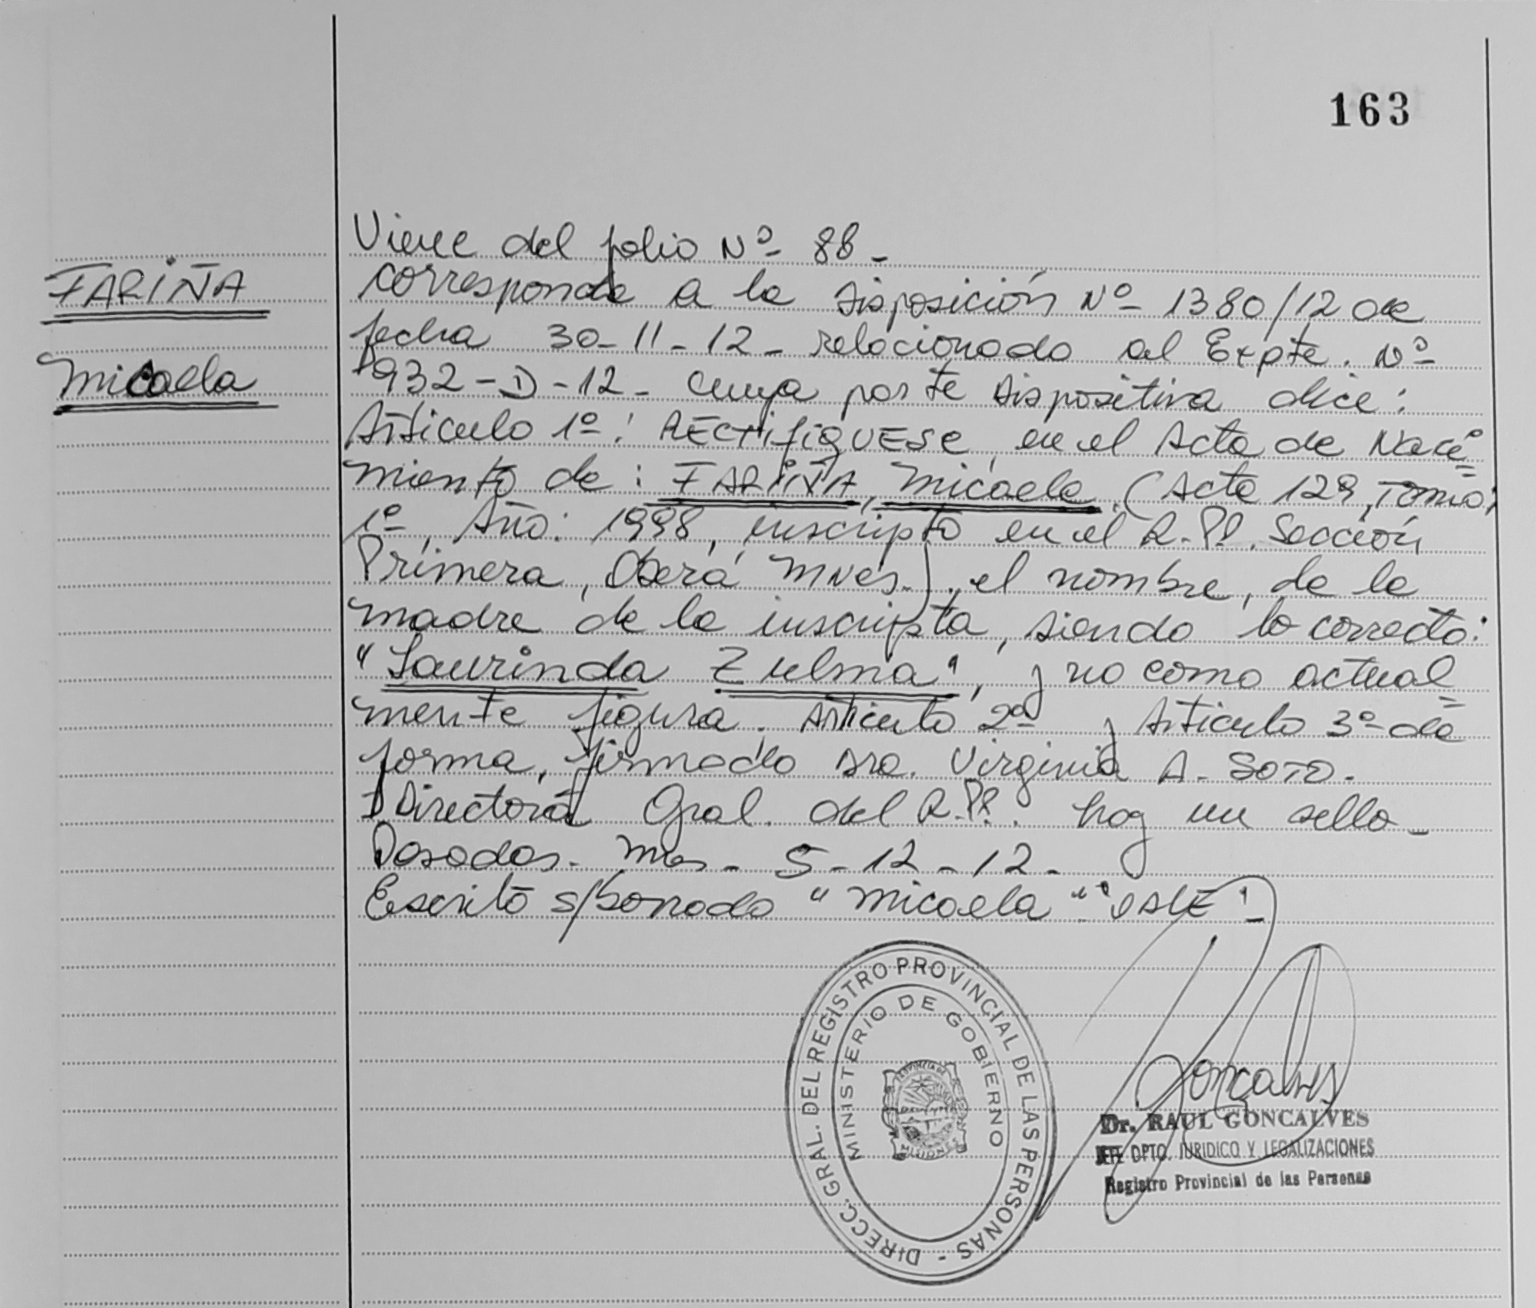 163
Viene del folio Nº 88 -
FARIÑA
corresponde a la disposición Nº 1380/12 de
fecha 30-11-12- relacionado al Expte. Nº
Micaela
1932-D-12- cuya parte dispositiva dice:
Artículo 1º: RECTIFIQUESE, en el Acta de Naci=
miento de: FARIÑA, Micaela, (Acta 129, Tomo:
1º, Año: 1998, inscripto en el R.P.P. Sección
Primera, Oberá Mnes.), el nombre, de la
madre de la inscripta, siendo lo correcto:
"Laurinda Zulma", y no como actual=
mente figura. Artículo 2º y Artículo 3º de
forma, firmado Sra. Virginia A. SOTO.
Directora Gral. del R.P.P. hay un sello -
Posadas - Mnes - 5-12-12-
Escrito s/borrado "Micaela" "VALE" -
DIRECC. GRAL. DEL REGISTRO PROVINCIAL DE LAS PERSONAS -
MINISTERIO DE GOBIERNO
PROVINCIA DE
MISIONES
Goncalves
Dr. RAUL GONCALVES
JEFE DPTO. JURIDICO Y LEGALIZACIONES
Registro Provincial de las Personas